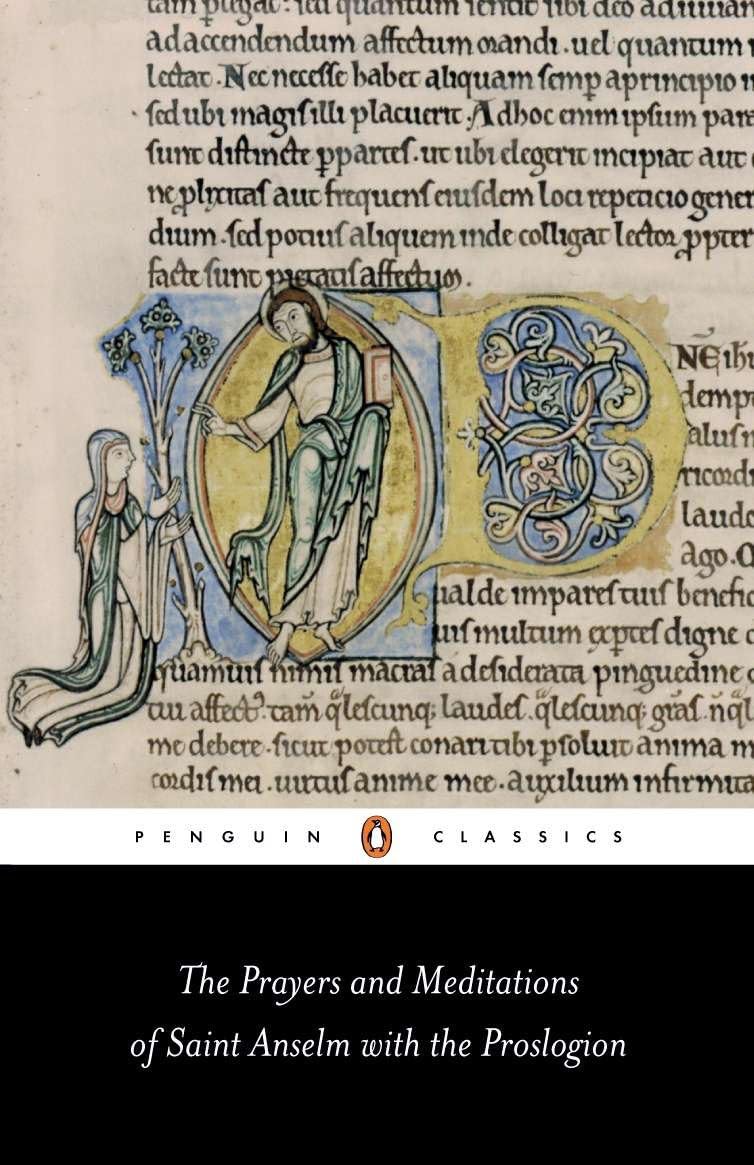 quantum sentit sibi deo
ad accendendum affectum orandi . uel quantum
lectat . Nec necesse habet aliquam semꝑ a principio
sed ubi magiſ illi placuerit . Ad hoc enim ipsum para
sunt distincte ꝑ parteſ . ut ubi elegerit incipiat aut
ne ꝓlixitaſ aut frequenſ eiuſdem loci repeticio gener
dium . ſed potiuſ aliquem inde colligat lector ꝓpter
facte ſunt pietatiſ affectum .
DNE ihu
demp
aluſ
ricordi
laudo
ago . O
ualde impareſ tuiſ benefic
uiſ multum experſ digne
quamuiſ nimiſ macraſ a deſiderata pinguedine
tui affectꝰ . tam q̃leſcunq; laudeſ . q̃leſcunq; gr̃aſ .
me debere . ſicut poteſt conari tibi ꝑſoluit anima m
cordiſ mei . uirtuſ anime mee . auxilium infirmita
PENGUIN CLASSICS
The Prayers and Meditations
of Saint Anselm with the Proslogion